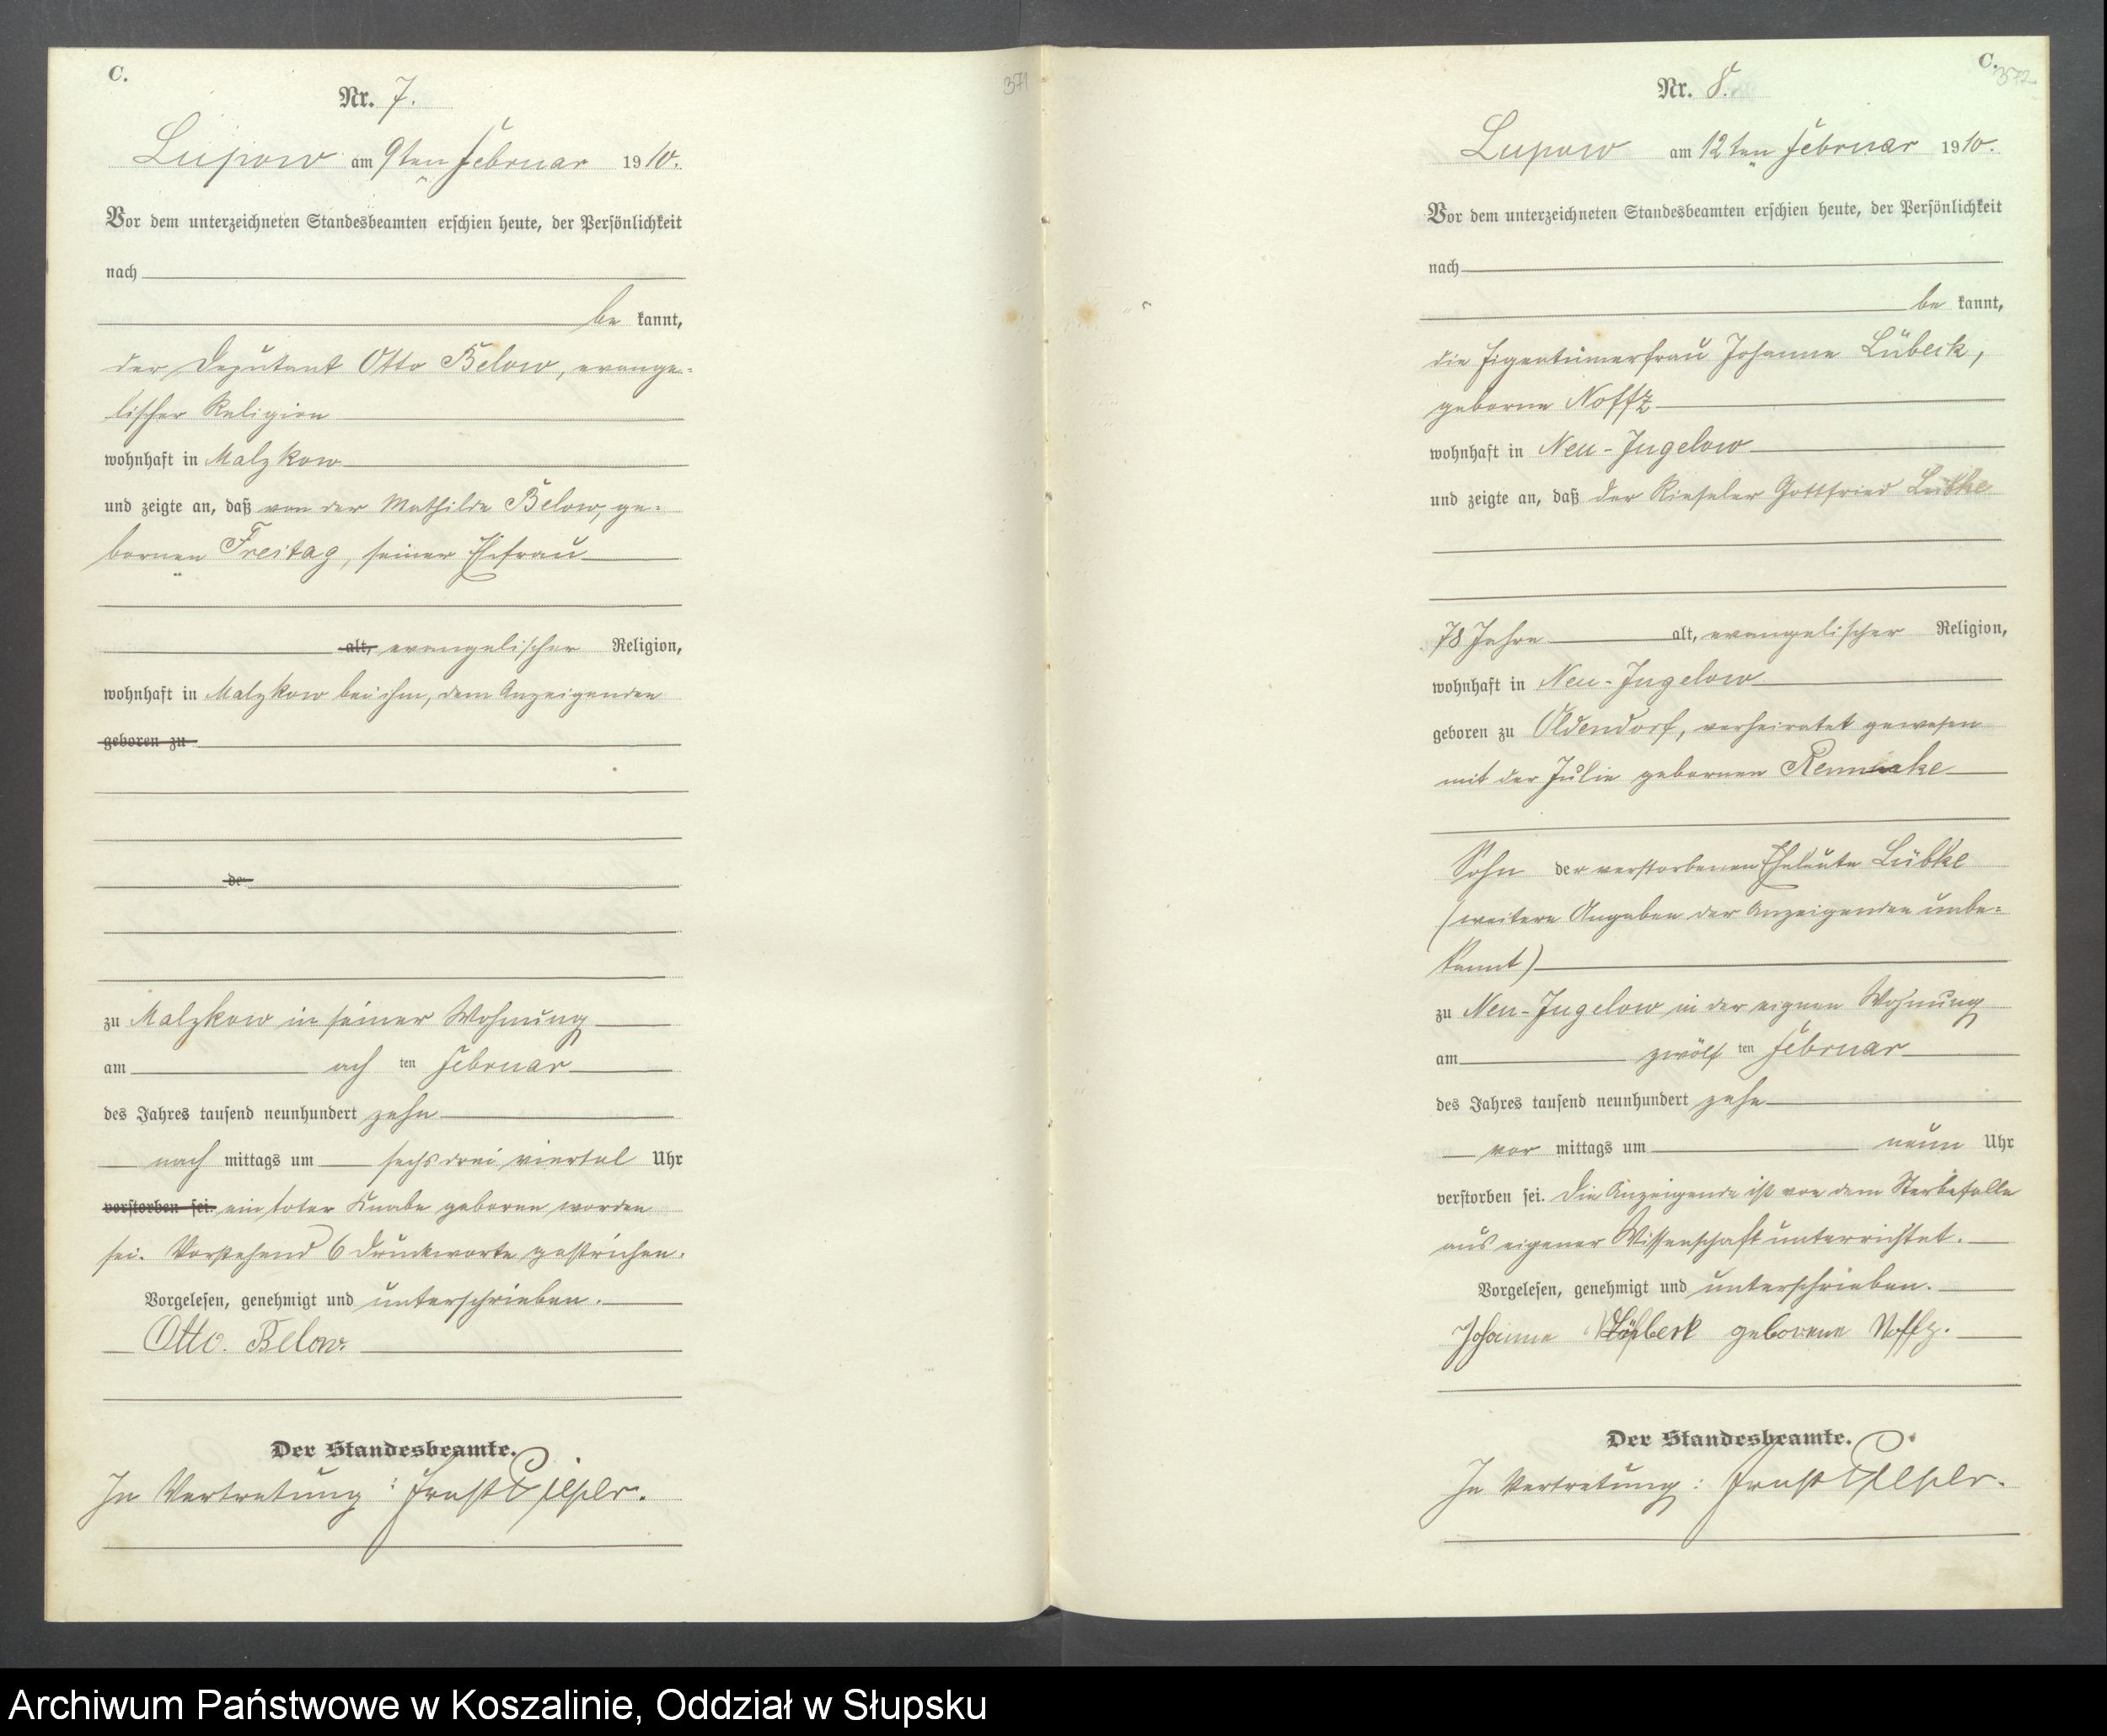 C.
371
Nr. 7.
Lupow am 9ten Februar 1910.
Vor dem unterzeichneten Standesbeamten erschien heute, der Persönlichkeit
nach
be kannt,
der Deputant Otto Below, evange-
lischer Religion
wohnhaft in Malzkow
und zeigte an, daß von der Mathilde Below, ge-
bornen Freitag, seiner Ehefrau
alt, evangelischer Religion,
wohnhaft in Malzkow bei ihm, dem Anzeigenden
geboren zu
de
zu Malzkow in seiner Wohnung
am ach ten Februar
des Jahres tausend neunhundert zehn
nach mittags um sechs drei viertel Uhr
verstorben sei. ein toter Knabe geboren worden
sei. Vorstehend 6 Druckworte gestrichen.
Vorgelesen, genehmigt und unterschrieben.
Otto Below.
Der Standesbeamte.
In Vertretung: Ernst
C.
372
Nr. 8.
Lupow am 12ten Februar 1910.
Vor dem unterzeichneten Standesbeamten erschien heute, der Persönlichkeit
nach
be kannt,
die Eigentümerfrau Johanne Lübeck,
geborne Noffz
wohnhaft in Neu-Jugelow
und zeigte an, daß der Rieseler Gottfried Lübke
78 Jahre alt, evangelischer Religion,
wohnhaft in Neu-Jugelow
geboren zu Oldendorf, verheiratet gewesen
mit der Julie gebornen
Sohn der verstorbenen Eheleute Lübke
(weitere Angaben der Anzeigenden unbe-
kannt)
zu Neu-Jugelow in der eignen Wohnung
am zwölf ten Februar
des Jahres tausend neunhundert zehn
vor mittags um neun Uhr
verstorben sei. Die Anzeigende ist von dem Sterbefalle
aus eigener Wissenschaft unterrichtet.
Vorgelesen, genehmigt und unterschrieben.
Johanne Lübeck geborene Noffz.
Der Standesbeamte.
In Vertretung: Ernst
Archiwum Państwowe w Koszalinie, Oddział w Słupsku